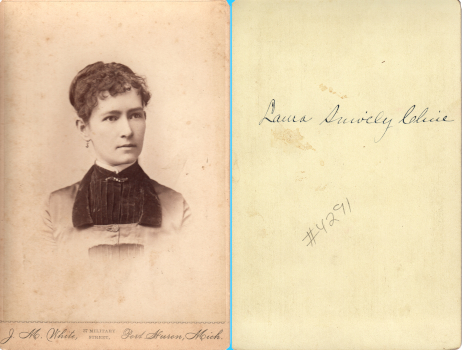 J. M. White,
MILITARY
STREET.
Port Huron, Mich.
Laura Snively Cline
#4291